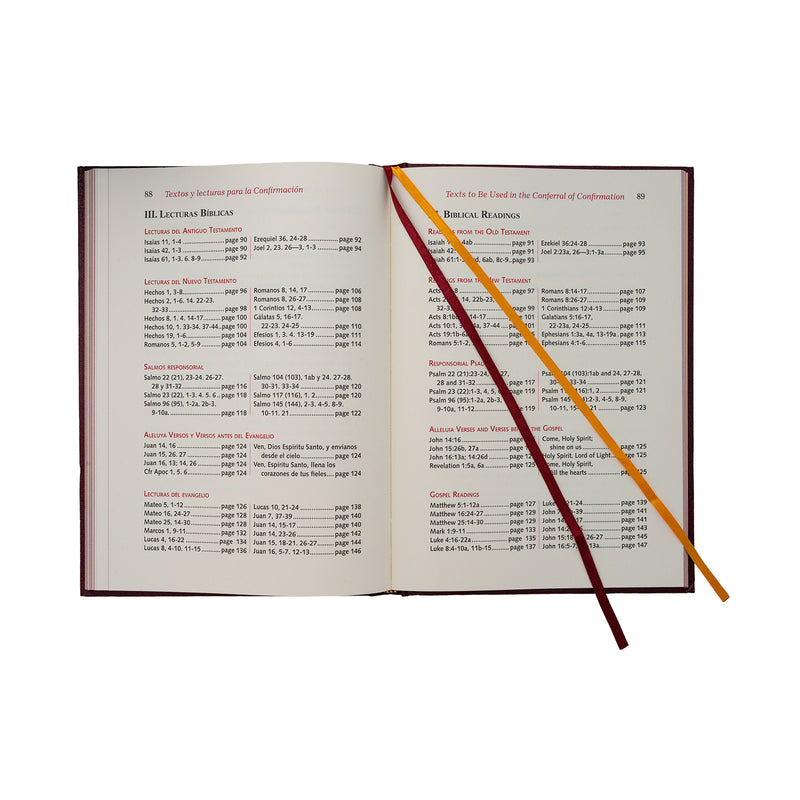 88 Textos y lecturas para la Confirmación
III. Lecturas Bíblicas
Lecturas del Antiguo Testamento
Isaías 11, 1-4 ............ page 90
Isaías 42, 1-3 ............ page 90
Isaías 61, 1-3. 6. 8-9 ............ page 92
Ezequiel 36, 24-28 ............ page 92
Joel 2, 23. 26—3, 1-3 ............ page 94
Lecturas del Nuevo Testamento
Hechos 1, 3-8 ............ page 96
Hechos 2, 1-6. 14. 22-23.
32-33 ............ page 98
Hechos 8, 1. 4. 14-17 ............ page 100
Hechos 10, 1. 33-34. 37-44 ............ page 100
Hechos 19, 1-6 ............ page 104
Romanos 5, 1-2, 5-9 ............ page 104
Romanos 8, 14, 17 ............ page 106
Romanos 8, 26-27 ............ page 108
1 Corintios 12, 4-13 ............ page 108
Gálatas 5, 16-17.
22-23. 24-25 ............ page 110
Efesios 1, 3. 4. 13-19 ............ page 111
Efesios 4, 1-6 ............ page 114
Salmos responsorial
Salmo 22 (21), 23-24. 26-27.
28 y 31-32 ............ page 116
Salmo 23 (22), 1-3. 4. 5. 6 .. page 118
Salmo 96 (95), 1-2a. 2b-3.
9-10a. ............ page 118
Salmo 104 (103), 1ab y 24. 27-28.
30-31. 33-34 ............ page 120
Salmo 117 (116), 1. 2 ............ page 120
Salmo 145 (144), 2-3. 4-5. 8-9.
10-11. 21 ............ page 122
Aleluya Versos y Versos antes del Evangelio
Juan 14, 16 ............ page 124
Juan 15, 26. 27 ............ page 124
Juan 16, 13; 14, 26 ............ page 124
Cfr Apoc 1, 5. 6 ............ page 124
Ven, Dios Espíritu Santo, y envianos
desde el cielo ............ page 124
Ven, Espíritu Santo, llena los
corazones de tus fieles .... page 124
Lecturas del evangelio
Mateo 5, 1-12 ............ page 126
Mateo 16, 24-27 ............ page 128
Mateo 25, 14-30 ............ page 128
Marcos 1, 9-11 ............ page 132
Lucas 4, 16-22 ............ page 134
Lucas 8, 4-10. 11-15 ............ page 136
Lucas 10, 21-24 ............ page 138
Juan 7, 37-39 ............ page 140
Juan 14, 15-17 ............ page 140
Juan 14, 23-26 ............ page 142
Juan 15, 18-21. 26-27 ............ page 144
Juan 16, 5-7. 12-13 ............ page 146
Texts to Be Used in the Conferral of Confirmation 89
Biblical Readings
from the Old Testament
Isaiah 4ab ............ page 91
Isaiah 42 ............ page 91
Isaiah 61:1-3 6ab, 8c-9 .. page 93
Ezekiel 36:24-28 ............ page 93
Joel 2:23a, 26—3:1-3a ............ page 95
from the New Testament
Acts ............ page 97
Acts 22b-23,
............ page 99
Acts ............ page 101
Acts 10:1, 37-44 ..... page 101
Acts 19:1b-6 ............ page
Romans 5:1-2, ............ page
Romans 8:14-17 ............ page 107
Romans 8:26-27 ............ page 109
1 Corinthians 12:4-13 ............ page 109
Galatians 5:16-17,
22-23a, 24-25 ............ page 111
Ephesians 1:3a, 4a, 13-19a ............ page 113
Ephesians 4:1-6 ............ page 115
Responsorial
Psalm 22 (21):23-24,
28 and 31-32 ............ page 117
Psalm 23 (22):1-3, 4, 5, page 119
Psalm 96 (95):1-2a, 2b-3,
9-10a, 11-12 ............ page 119
104 (103):1ab and 24, 27-28,
30-31, ............ page 121
Psalm 117 (116): ............ page 121
Psalm 145 2-3, 4-5, 8-9,
10-11, ............ page 123
Alleluia Verses and Verses the Gospel
John 14:16 ............ page
John 15:26b, 27a ............ page
John 16:13a; 14:26d ............ page 125
Revelation 1:5a, 6a ............ page 125
Come, Holy Spirit;
shine on us ............ page 125
Holy Spirit, Lord of Light .... page 125
Come, Holy Spirit,
the hearts ............ page 125
Gospel Readings
Matthew 5:1-12a ............ page 127
Matthew 16:24-27 ............ page 129
Matthew 25:14-30 ............ page 129
Mark 1:9-11 ............ page
Luke 4:16-22a ............ page 135
Luke 8:4-10a, 11b-15 ............ page 137
Luke 21-24 ............ page 139
John ............ page 141
John 14: ............ page 141
John 14:23-26 ............ page 143
John 15:18 26-27 ............ page 145
John 16:5-7, 13a ............ page 147